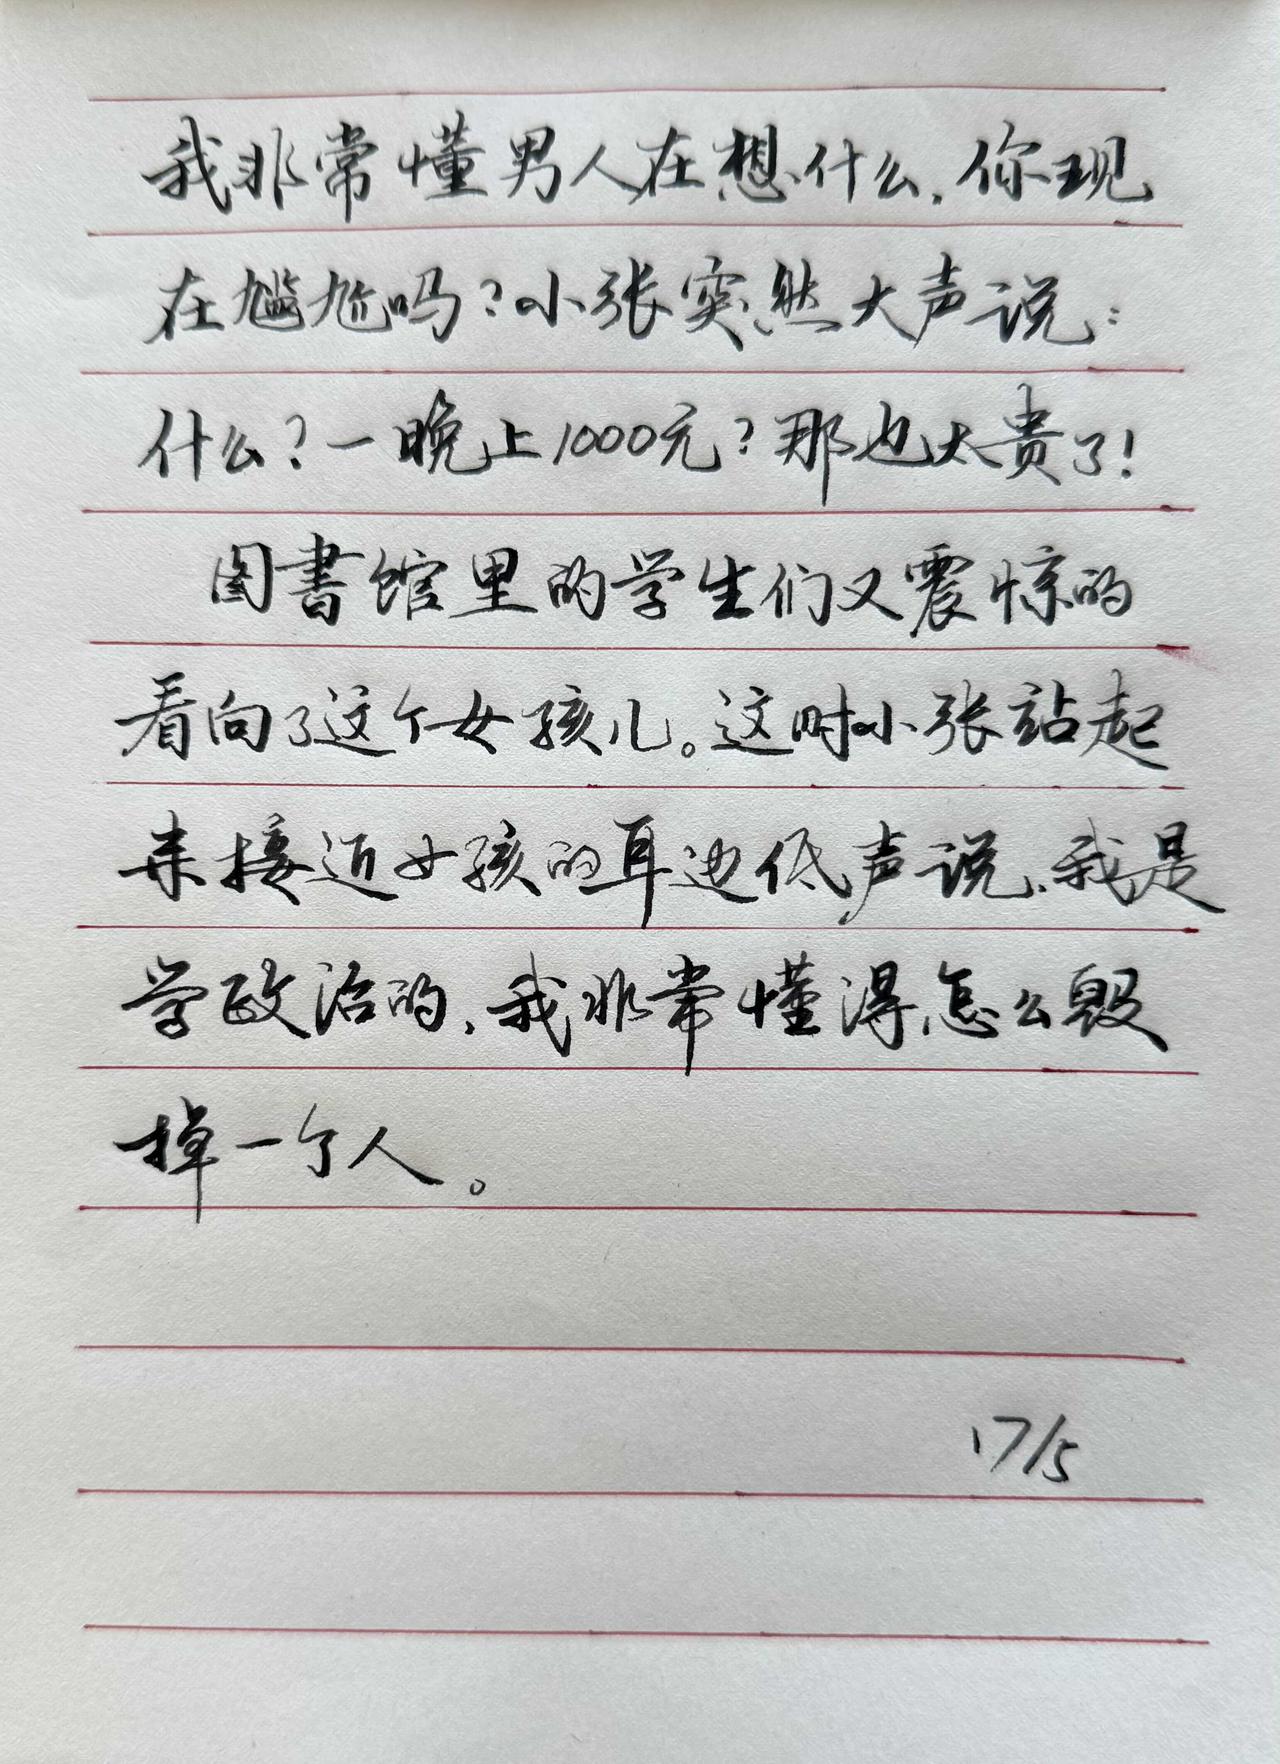 我非常懂男人在想什么，你现
在尴尬吗？小张突然大声说：
什么？一晚上1000元？那也太贵了！
图書馆里的学生们又震惊的
看向了这个女孩儿。这时小张站起
来接近女孩的耳边低声说，我是
学政治的，我非常懂得怎么毁
掉一个人。
17/5